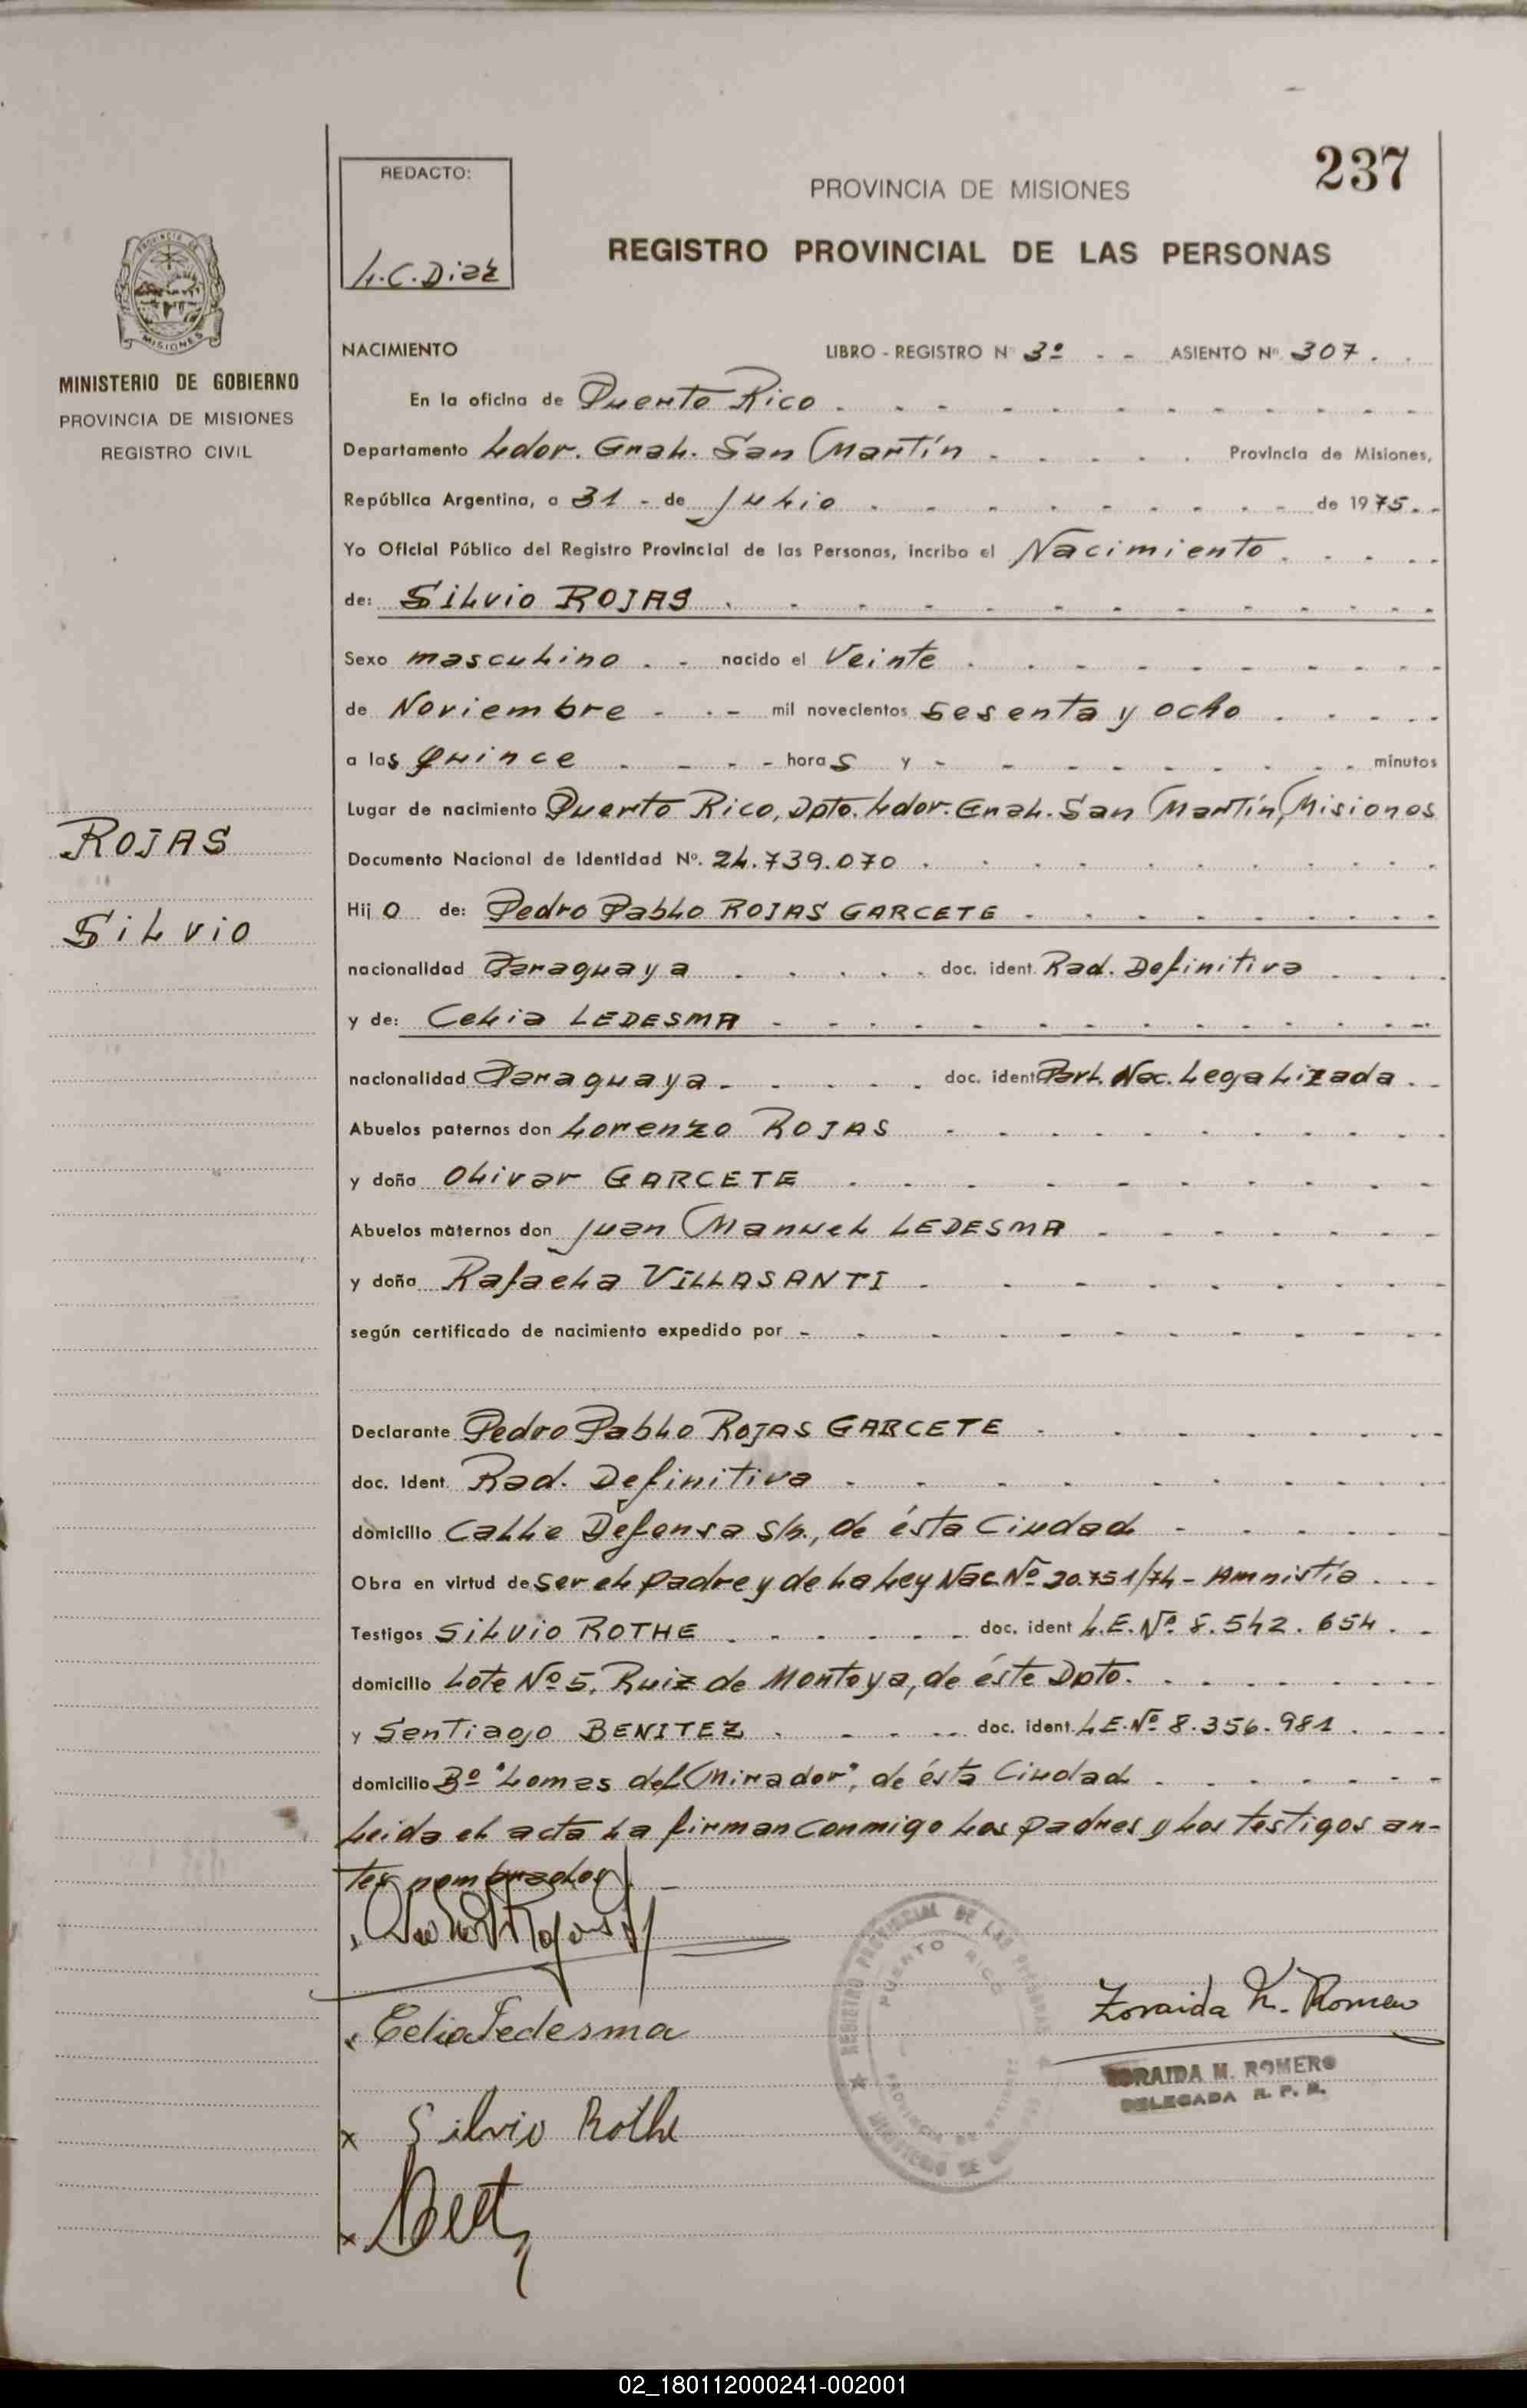 237
REDACTO:
L.C. Diaz
PROVINCIA DE MISIONES
REGISTRO PROVINCIAL DE LAS PERSONAS
PROVINCIA DE
MISIONES
MINISTERIO DE GOBIERNO
PROVINCIA DE MISIONES
REGISTRO CIVIL
NACIMIENTO LIBRO - REGISTRO Nº 3º - - ASIENTO Nº 307.
En la oficina de Puerto Rico
Departamento Ldor. Gral. San Martín Provincia de Misiones,
República Argentina, a 31 - de Julio de 1975
Yo Oficial Público del Registro Provincial de las Personas, incribo el Nacimiento
de: Silvio ROJAS
Sexo masculino nacido el Veinte
de Noviembre mil novecientos sesenta y ocho
a las quince horas y - minutos
Lugar de nacimiento Puerto Rico, Dpto. Ldor. Gral. San Martín, Misiones
Documento Nacional de Identidad Nº. 24.739.070
Hijo de: Pedro Pablo ROJAS GARCETE
nacionalidad Paraguaya doc. ident. Rad. Definitiva
y de: Celia LEDESMA
nacionalidad Paraguaya doc. ident Part. Nac. Legalizada
Abuelos paternos don Lorenzo ROJAS
y doña Olivar GARCETE
Abuelos maternos don Juan Manuel LEDESMA
y doña Rafaela VILLASANTI
según certificado de nacimiento expedido por -
Declarante Pedro Pablo ROJAS GARCETE
doc. Ident. Rad. Definitiva
domicilio Calle Defensa s/n., de ésta Ciudad
Obra en virtud de ser el padre y de la Ley Nac Nº 20.751/74 - Amnistía
Testigos Silvio ROTHE doc. ident L.E. Nº 8.542.654
domicilio Lote Nº 5, Ruiz de Montoya, de éste Dpto.
y Santiago BENITEZ doc. ident. L.E. Nº 8.356.981
domicilio Bº "Lomas del Mirador", de ésta Ciudad
Leida el acta la firman conmigo los padres y los testigos an-
tes nombrados.
ROJAS
Silvio
Celia Ledesma
x Silvio Rothe
x
REGISTRO PROVINCIAL DE LAS PERSONAS
PUERTO RICO
PROVINCIA DE MISIONES
MINISTERIO DE
Zoraida M. Romero
ZORAIDA M. ROMERO
DELEGADA R. P. P.
02_180112000241-002001